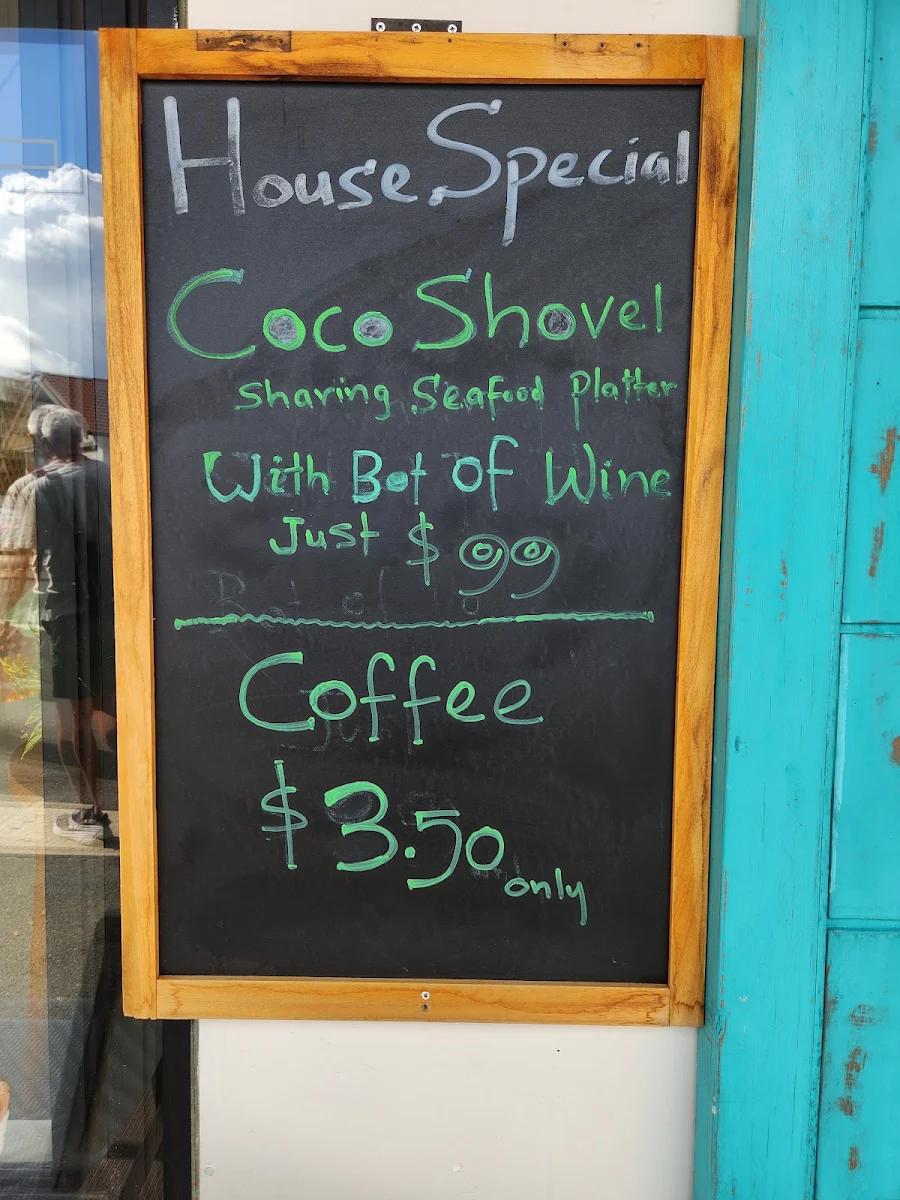 House Special
Coco Shovel
Sharing Seafood Platter
With Bot of Wine
Just $99
Coffee
$3.50
only